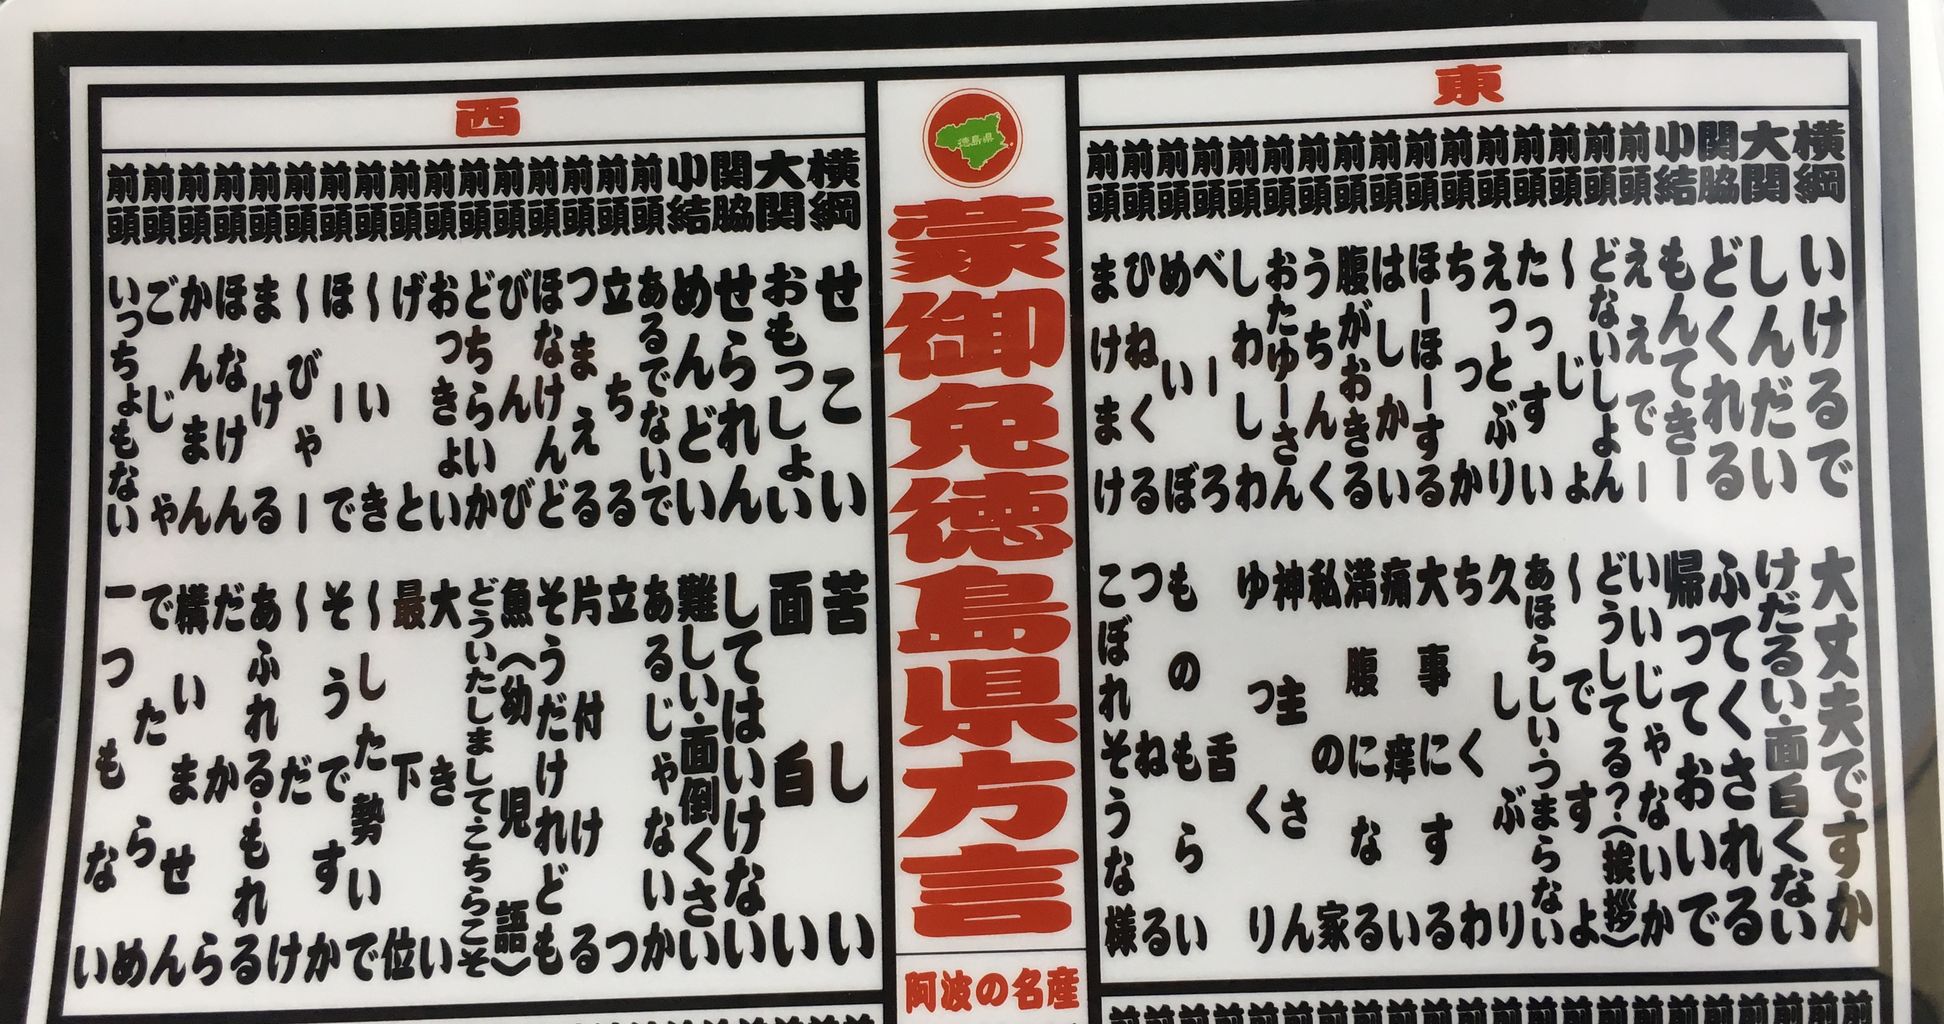 東
横綱 いけるで 大丈夫ですか
大関 しんだい けだるい・面白くない
関脇 どくれる ふてくされる
小結 もんてきー 帰っておいで
前頭 ええでー いいじゃないか
前頭 どないしょん どうしてる?(挨拶)
前頭 ～じょ ～ですよ
前頭 たっすい あほらしい・うまらない
前頭 えっとぶり 久しぶり
前頭 ちっか ちくわ
前頭 ほーほーする 大事にする
前頭 はしかい 痛痒い
前頭 腹がおきる 満腹になる
前頭 うちんく 私の家
前頭 おたゆーさん 神主さん
前頭 しわしわ ゆっくり
前頭 べーろ 舌
前頭 めいぼ ものもらい
前頭 ひねくる つねる
前頭 まけまけ こぼれそうな様
徳島県
蒙御免徳島県方言
阿波の名産
西
横綱 せこい 苦しい
大関 おもっしょい 面白い
関脇 せられん してはいけない
小結 めんどい 難しい・面倒くさい
前頭 あるでないで あるじゃないか
前頭 立ちる 立つ
前頭 つまえる 片付ける
前頭 ほなけんど そうだけれども
前頭 びんび 魚(幼児語)
前頭 どちらいか どういたしまして・こちらこそ
前頭 おっきょい 大きい
前頭 げと 最下位
前頭 ～いき ～した勢いで
前頭 ほーで そうですか
前頭 ～びゃー ～だけ
前頭 まける あふれる・もれる
前頭 ほなけん だから
前頭 かんまん 構いません
前頭 ごじゃ でたらめ
前頭 いっちょもない 一つもない